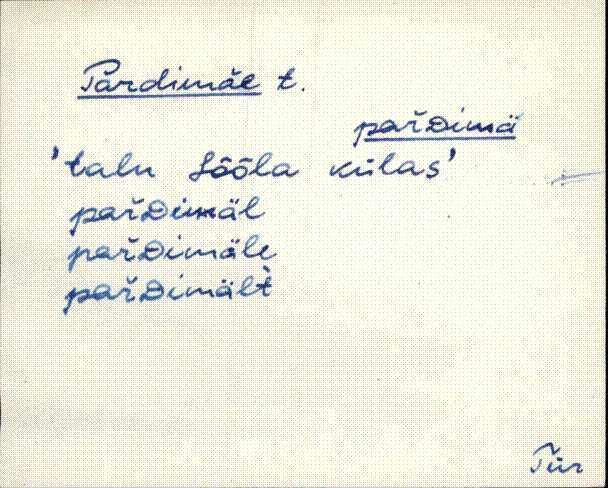 Pardimäe t.
pařᴅimä
'talu Sõõla külas'
pařᴅimäl
pařᴅimäle
pařᴅimält̀
Tür